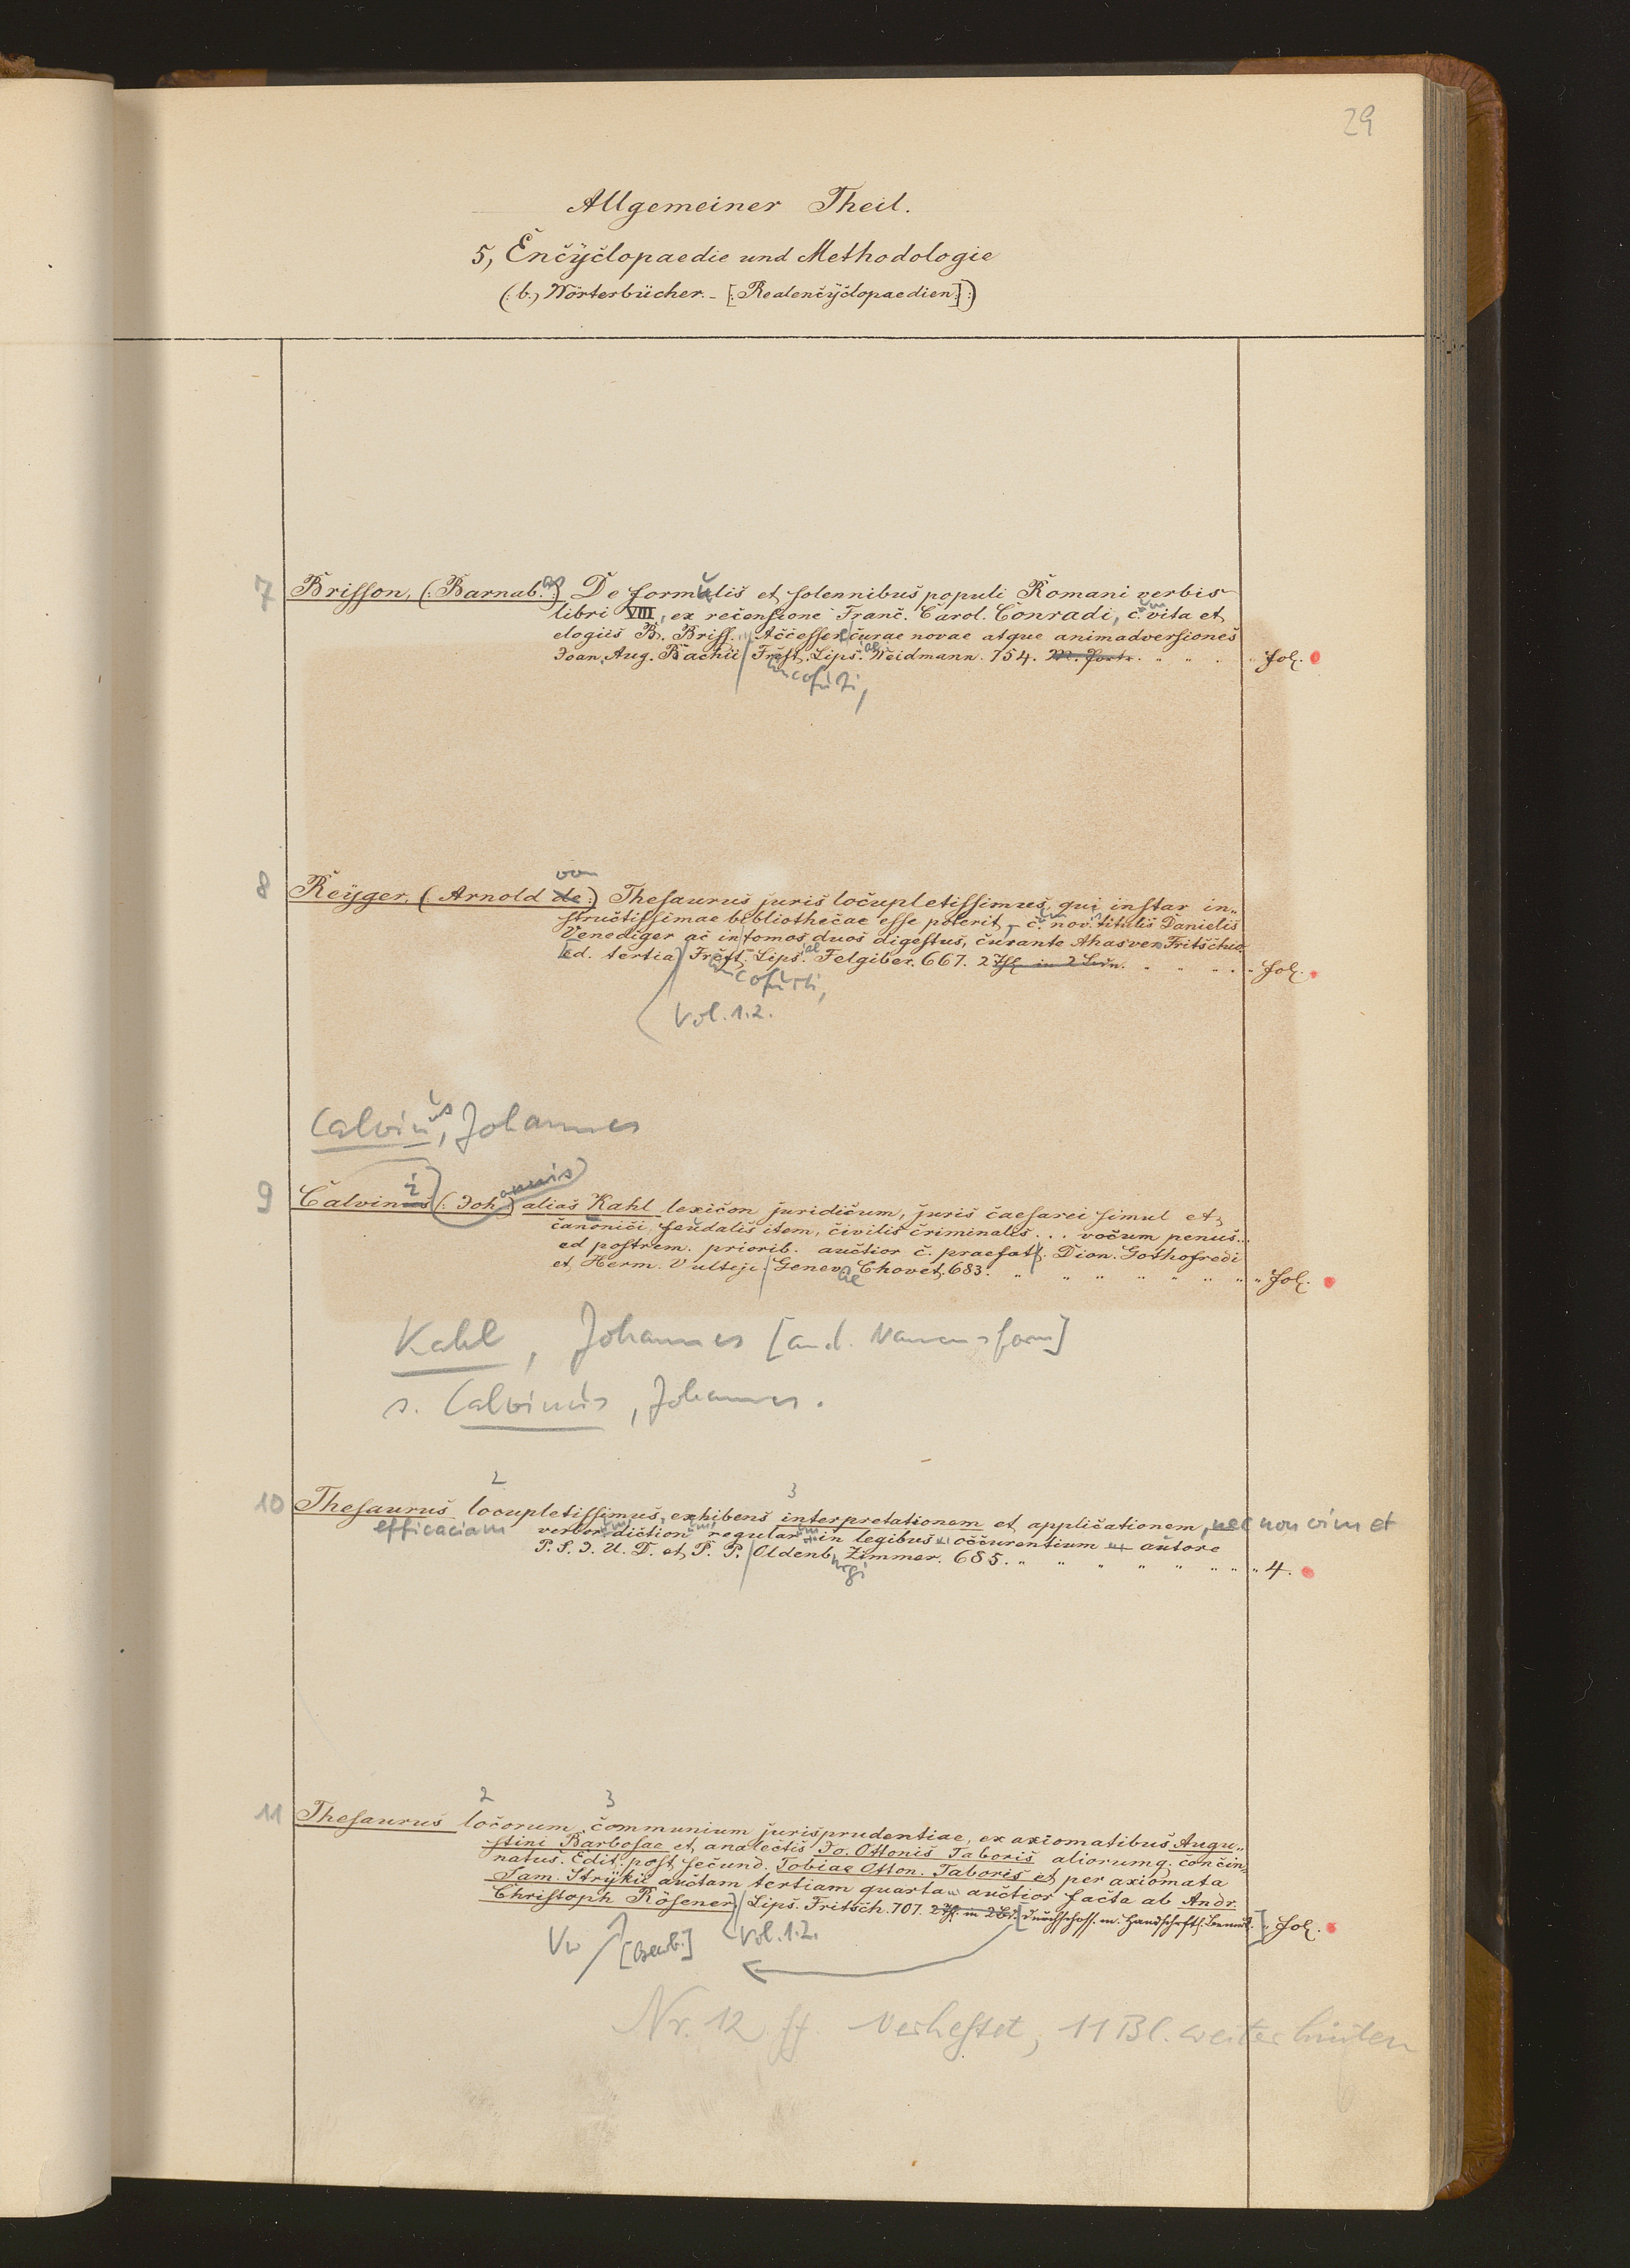 29
Allgemeiner Theil.
5, Encyclopaedie und Methodologie
(: b, Wörterbücher. - [: Realencyclopaedien :] :)
7 Brisson, (: Barnab. as :) De formulis et solennibus populi Romani verbis
libri VIII, ex recensione Franc. Carol. Conradi, c. um vita et
elogiis B. Briss. Accesser curae novae atque animadversiones
Joan. Aug. Bachii Frcft. Lips. ae Weidmann. 754. Fol.
ancofurti,
von
8 Reyger, (: Arnold de :) Thesaurus juris locupletissimus, qui instar in-
structissimae bibliothecae esse poterit, c. um nov. titulis Danielis
Venediger ac in tomos duos digestus, curante Ahasver Fritschio
ed. tertia Frcft. Lips. ae Felgiber. 667. 2 Thl. in 2 Bdn. Fol.
ancofurti,
Vol. 1.2.
Calvinus, Johannes
i annis)
9 Calvinus (: Joh :) alias Kahl lexicon juridicum, juris caesarei simul et
canonici, feudalis item, civilis criminalis . . . vocum penus..
ed postrem. priorib. auctior c. praefatt. Dion. Gothofredi
et Herm. Vulteji. Genev ae Chovet. 683. Fol.
Kahl, Johannes [and. Namensform]
s. Calvinus, Johannes.
2 3
10 Thesaurus locupletissimus, exhibens interpretationem et applicationem, nec non vim et
efficaciam verbor. um diction um regular um in legibus occurentium autore
P. S. J. U. D. et P. P. Oldenb. urgi Zimmer. 685. 4.
2 3
11 Thesaurus locorum communium jurisprudentiae, ex axiomatibus Augu-
stini Barbosae et analectis Jo. Ottonis Taboris aliorumq. concin-
natus. Edit. post secund. Tobiae Otton. Taboris et per axiomata
Sam. Strykii auctam tertiam quarta auctior facta ab Andr.
Christoph Rösener Lips. Fritsch. 707. 2 Thl. in 2 Bd. [durchschoss. m. handschriftl. Bemerk.] Fol.
Vw [Bearb.] Vol. 1.2.
Nr. 12 ff. verheftet, 11 Bl. weiter hinten